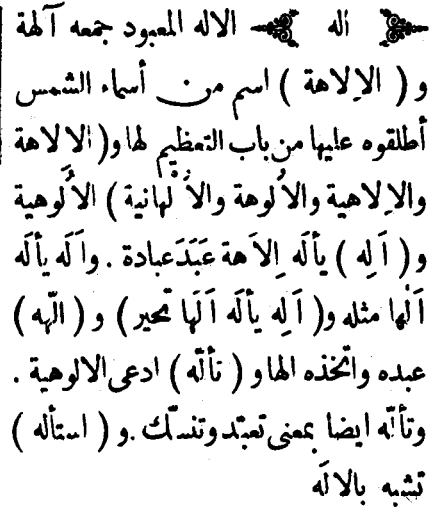 أله الاله المعبود جمعه آلهة
و ( الاِلاهة ) اسم من أسماء الشمس
أطلقوه عليها من باب التعظيم لها و( الالاهة
والاِلاهية والأُلوهة والأُلْهانية ) الأُلوهية
و ( اَلِه ) يألَه اِلاَهة عَبَدَ عبادة . واَلَه يألَه
اَلَها مثله و( اَلِه يألَه اَلَها تحير ) و ( الّهه )
عبده واتخذه الها و ( تألّه ) ادعى الالوهية .
وتألّه ايضا بمعنى تعبّد وتنسّك . و ( استأله )
تشبه بالالَه